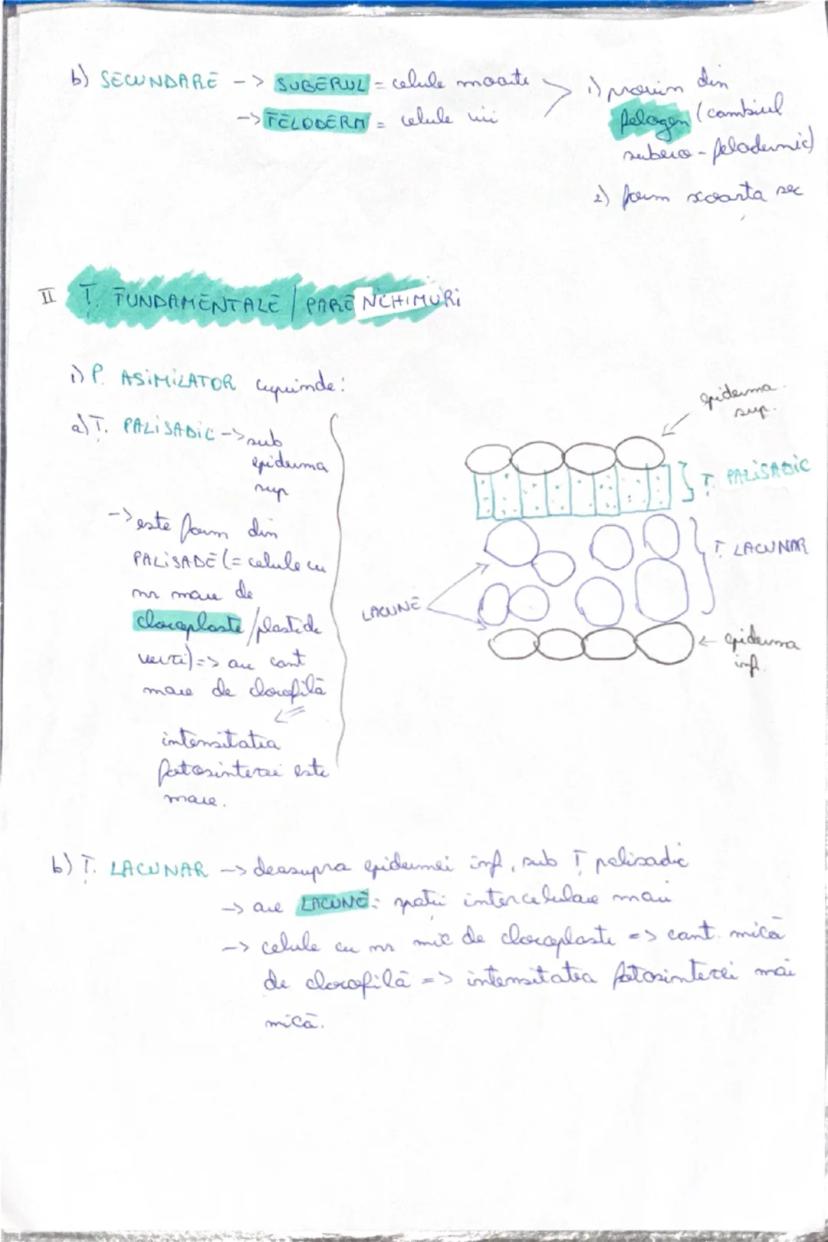 b) SECUNDARE -> SUBERUL = celule moarte
-> FELODERM = celule vii
1) provin din
felogen (cambiul
subero-felodermic)
2) form scoarta sec
II Ț. FUNDAMENTALE / PARENCHIMURI
1) P. ASIMILATOR cuprinde:
a) Ț. PALISADIC -> sub
epiderma
sup
-> este form din
PALISADE (= celule cu
nr mare de
cloroplaste / plastide
verzi) => au cant
mare de clorofilă
intensitatea
fotosintezei este
mare.
epiderma
sup.
Ț. PALISADIC
Ț. LACUNAR
LACUNE
epiderma
inf.
b) Ț. LACUNAR -> deasupra epidermei inf, sub Ț palisadic
-> are LACUNE: spatii intercelulare mari
-> celule cu nr mic de cloroplaste => cant. mică
de clorofilă => intensitatea fotosintezei mai
mică.